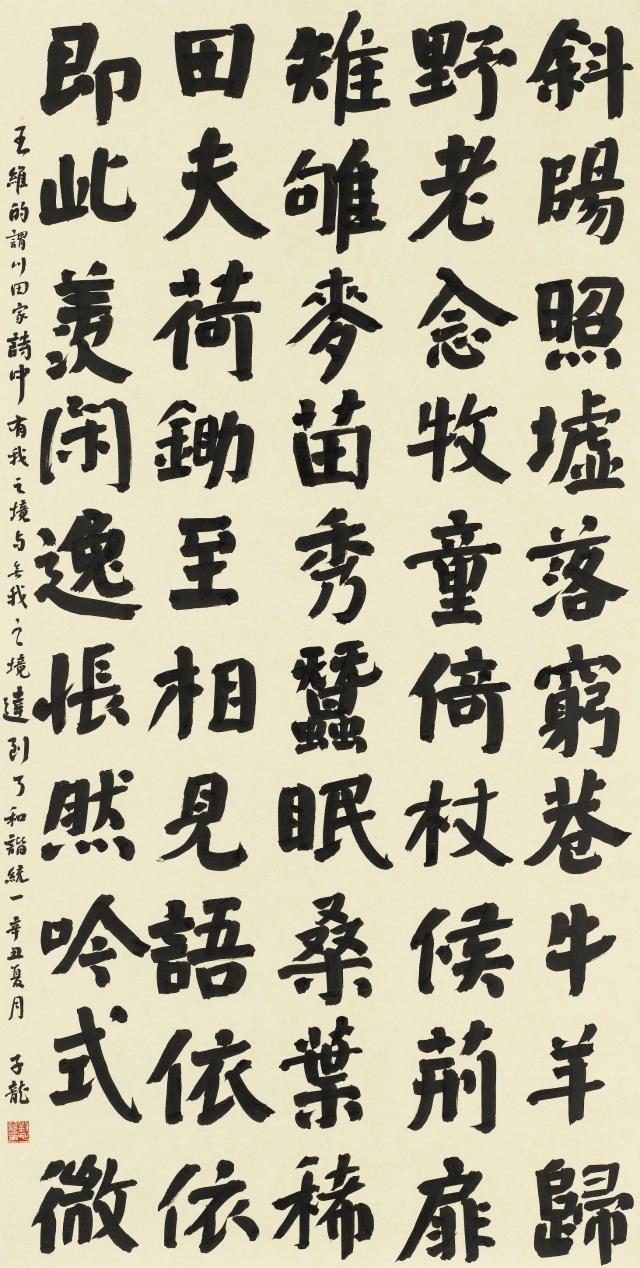 斜陽照墟落窮巷牛羊歸
野老念牧童倚杖候荊扉
雉雊麥苗秀蠶眠桑葉稀
田夫荷鋤至相見語依依
即此羨閑逸悵然吟式微
王維的謂川田家詩中有我之境与無我之境達到了和諧統一辛丑夏月 子龍